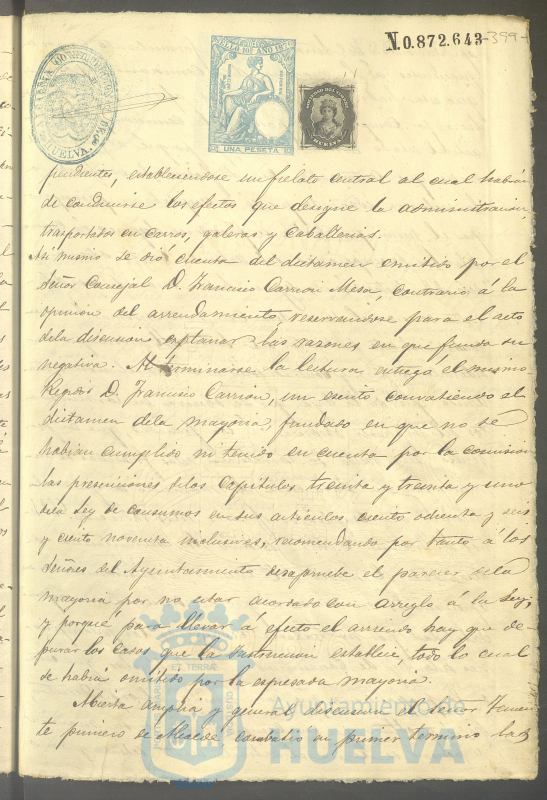 N.0.872.643
-399-
SELLO 10º AÑO 187
UNA PESETA
HUELVA
pendientes, estableciendose un fielato central al cual habrán
de conducirse los efectos que designe la administración,
trasportados en carros, galeras y Caballerias.
Asi mismo se dió cuenta del dictamen emitido por el
Señor Concejal D. Francisco Carrion Mesa, contrario á la
opinion del arrendamiento, reservandose para el acto
dela discusion esplanar las razones en que funda su
negativa. Al terminarse la lectura entregó el mismo
Regidor D. Francisco Carrion, un escrito convatiendo el
dictamen dela mayoria, fundado en que no se
habian cumplido ni tenido en cuenta por la comision
las prescriciones delos Capitulos treinta y treinta y uno
dela Ley de consumos en sus articulos ciento ochenta y seis
y ciento noventa inclusives, recomendando por tanto á los
Señores del Ayuntamiento desapruebe el parecer dela
mayoria por no estar acordado con arreglo á la Ley;
y porque para llevar á efecto el arriendo hay que de-
purar los casos que la Instruccion establece, todo lo cual
se habia omitido por la espresada mayoria.
Abierta amplia y general discusion el Señor Tenien-
te primero de Alcalde combatio en primer termino las
Ayuntamiento de
HUELVA